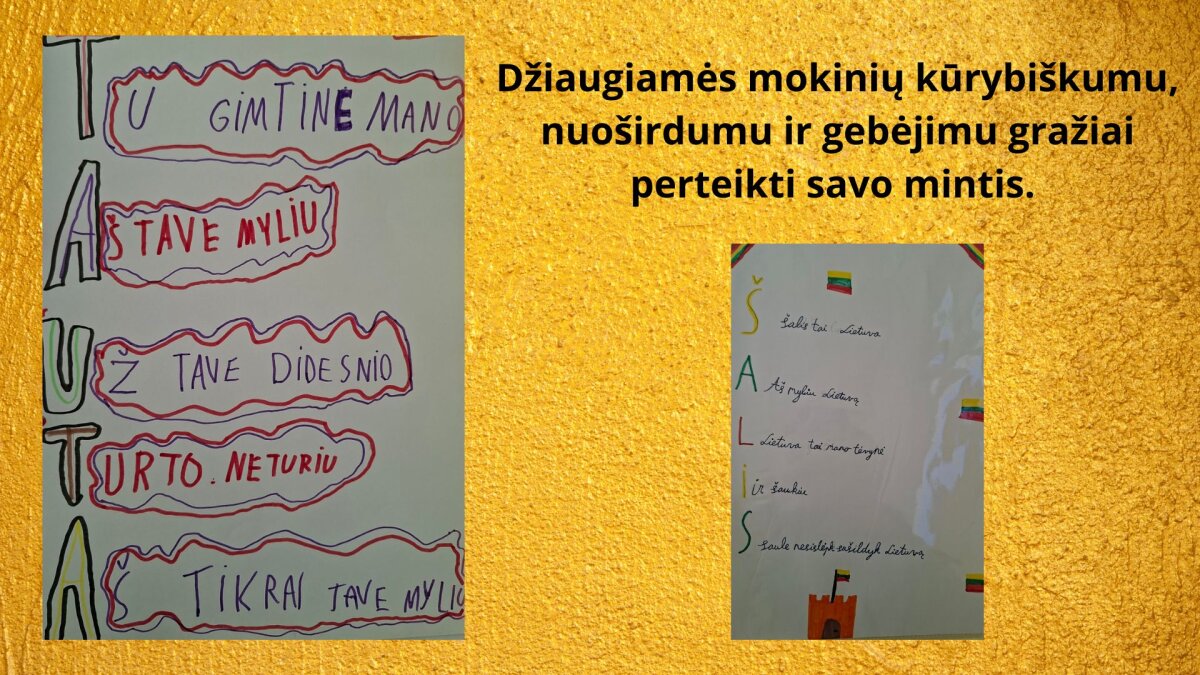 Džiaugiamės mokinių kūrybiškumu,
nuoširdumu ir gebėjimu gražiai
perteikti savo mintis.
TU GIMTINE MANO
AŠ TAVE MYLIU
UŽ TAVE DIDESNIO
TURTO. NETURIU
AŠ TIKRAI TAVE MYLIU
Š šalis tai Lietuva
A Aš myliu Lietuvą
L Lietuva tai mano tėvynė
i ir šaukiu
S saule nesislėpk sušildyk Lietuvą